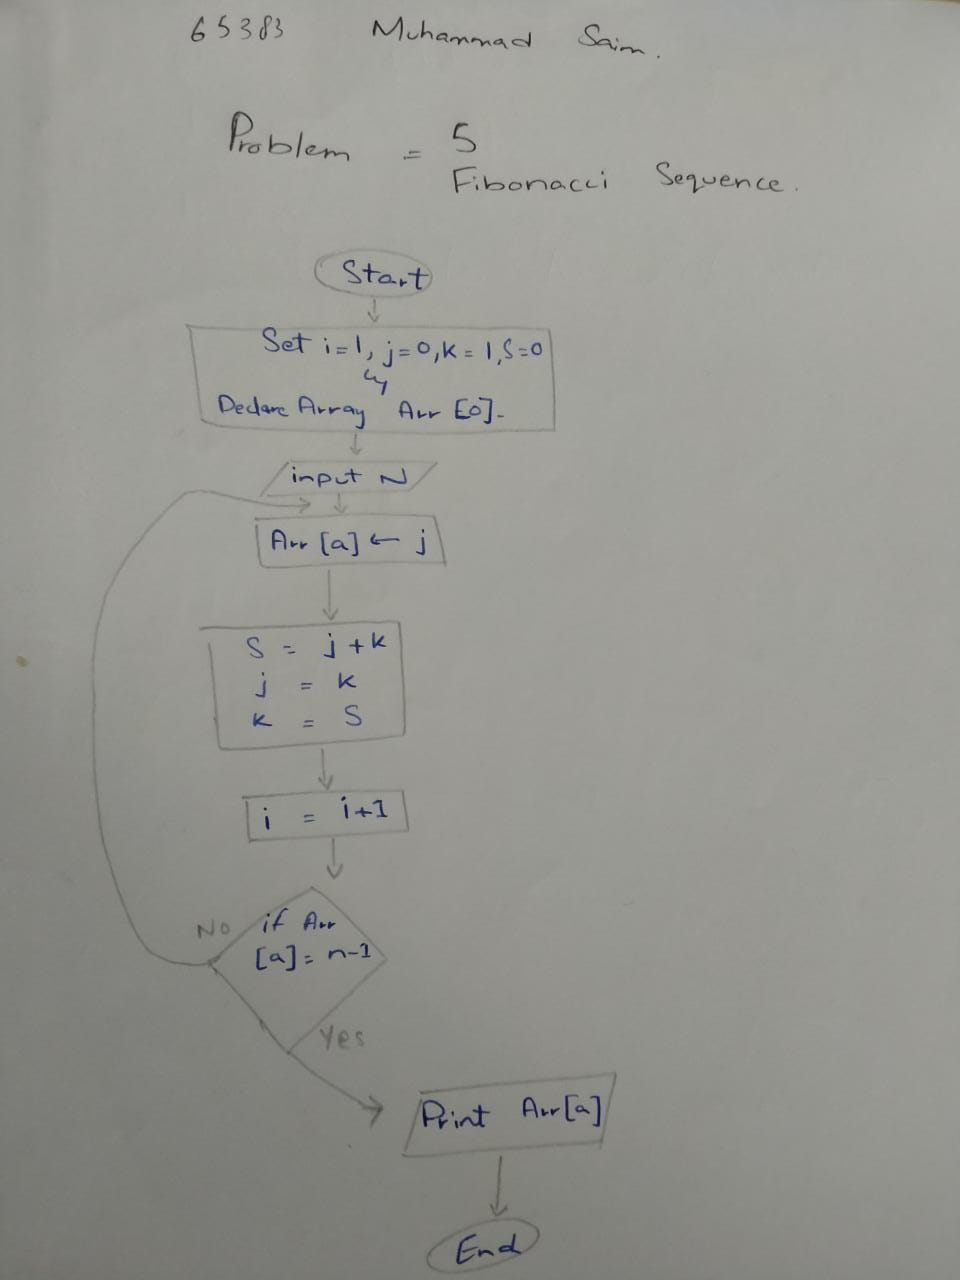 65383 Muhammad Saim.
Problem = 5
Fibonacci Sequence.
Start
Set i=1, j=0, k=1, S=0
Declare Array Arr [0].
input N
Arr [a] ← j
S = j+k
j = k
k = S
i = i+1
No
if Arr
[a] = n-1
Yes
Print Arr[a]
End